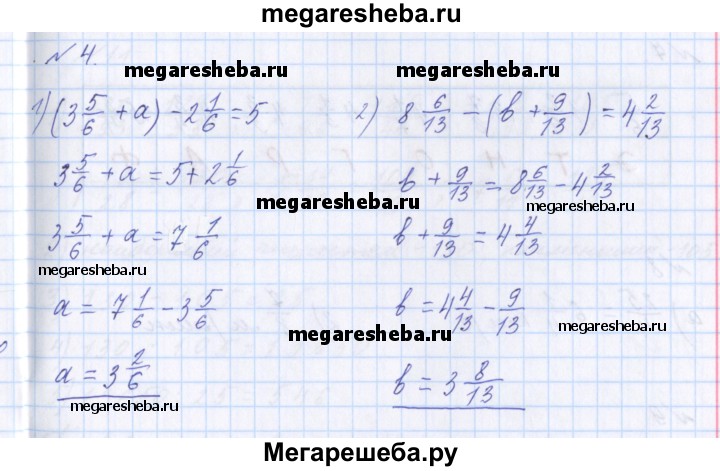 megaresheba.ru
№ 4.
megaresheba.ru megaresheba.ru
1) (3 5/6 + a) - 2 1/6 = 5 2) 8 6/13 - (в + 9/13) = 4 2/13
3 5/6 + a = 5 + 2 1/6 в + 9/13 = 8 6/13 - 4 2/13
megaresheba.ru megaresheba.ru
3 5/6 + a = 7 1/6 в + 9/13 = 4 4/13
megaresheba.ru megaresheba.ru
a = 7 1/6 - 3 5/6 в = 4 4/13 - 9/13
megaresheba.ru megaresheba.ru
a = 3 2/6 в = 3 8/13
megaresheba.ru megaresheba.ru
Мегарешеба.ру